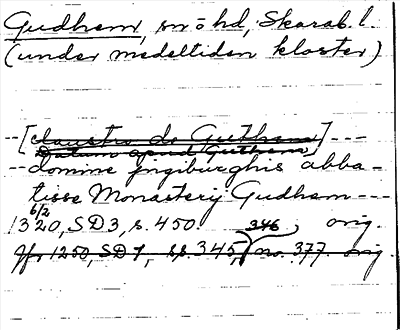 Gudhem, sn o hd, Skarab. l.
(under medeltiden kloster)
--[claustro de Guthem]---
Datum apud Guthem,
--domine jngiburghis abba-
tisse Monasterij Gudhem---
6/2
1320, SD 3, s. 450. orig.
346,
Jfr 1250, SD 1, s. 345, no. 377 orig.